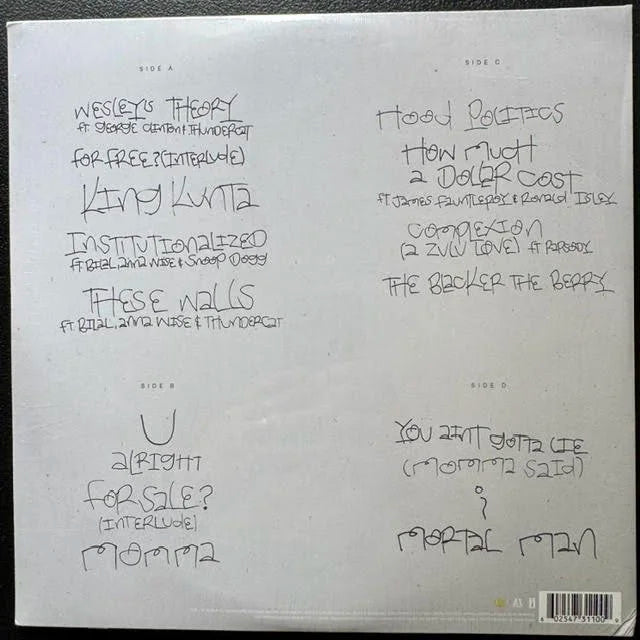 SIDE A
WESLEY'S THEORY
ft GEORGE CLINTON & THUNDERCAT
FOR FREE? (INTERLUDE)
KING KUNTA
INSTITUTIONALIZED
ft BILAL, ANNA WISE & SNOOP DOGG
THESE WALLS
FT. BILAL, ANNA WISE & THUNDERCAT
SIDE B
U
ALRIGHT
FOR SALE?
(INTERLUDE)
MOMMA
SIDE C
HOOD POLITICS
HOW MUCH
A DOLLAR COST
FT JAMES FAUNTLEROY & RONALD ISLEY
COMPLEXION
(A ZULU LOVE) ft RAPSODY
THE BLACKER THE BERRY
SIDE D
YOU AINT GOTTA LIE
(MOMMA SAID)
i
MORTAL MAN
6 02547 31100 9